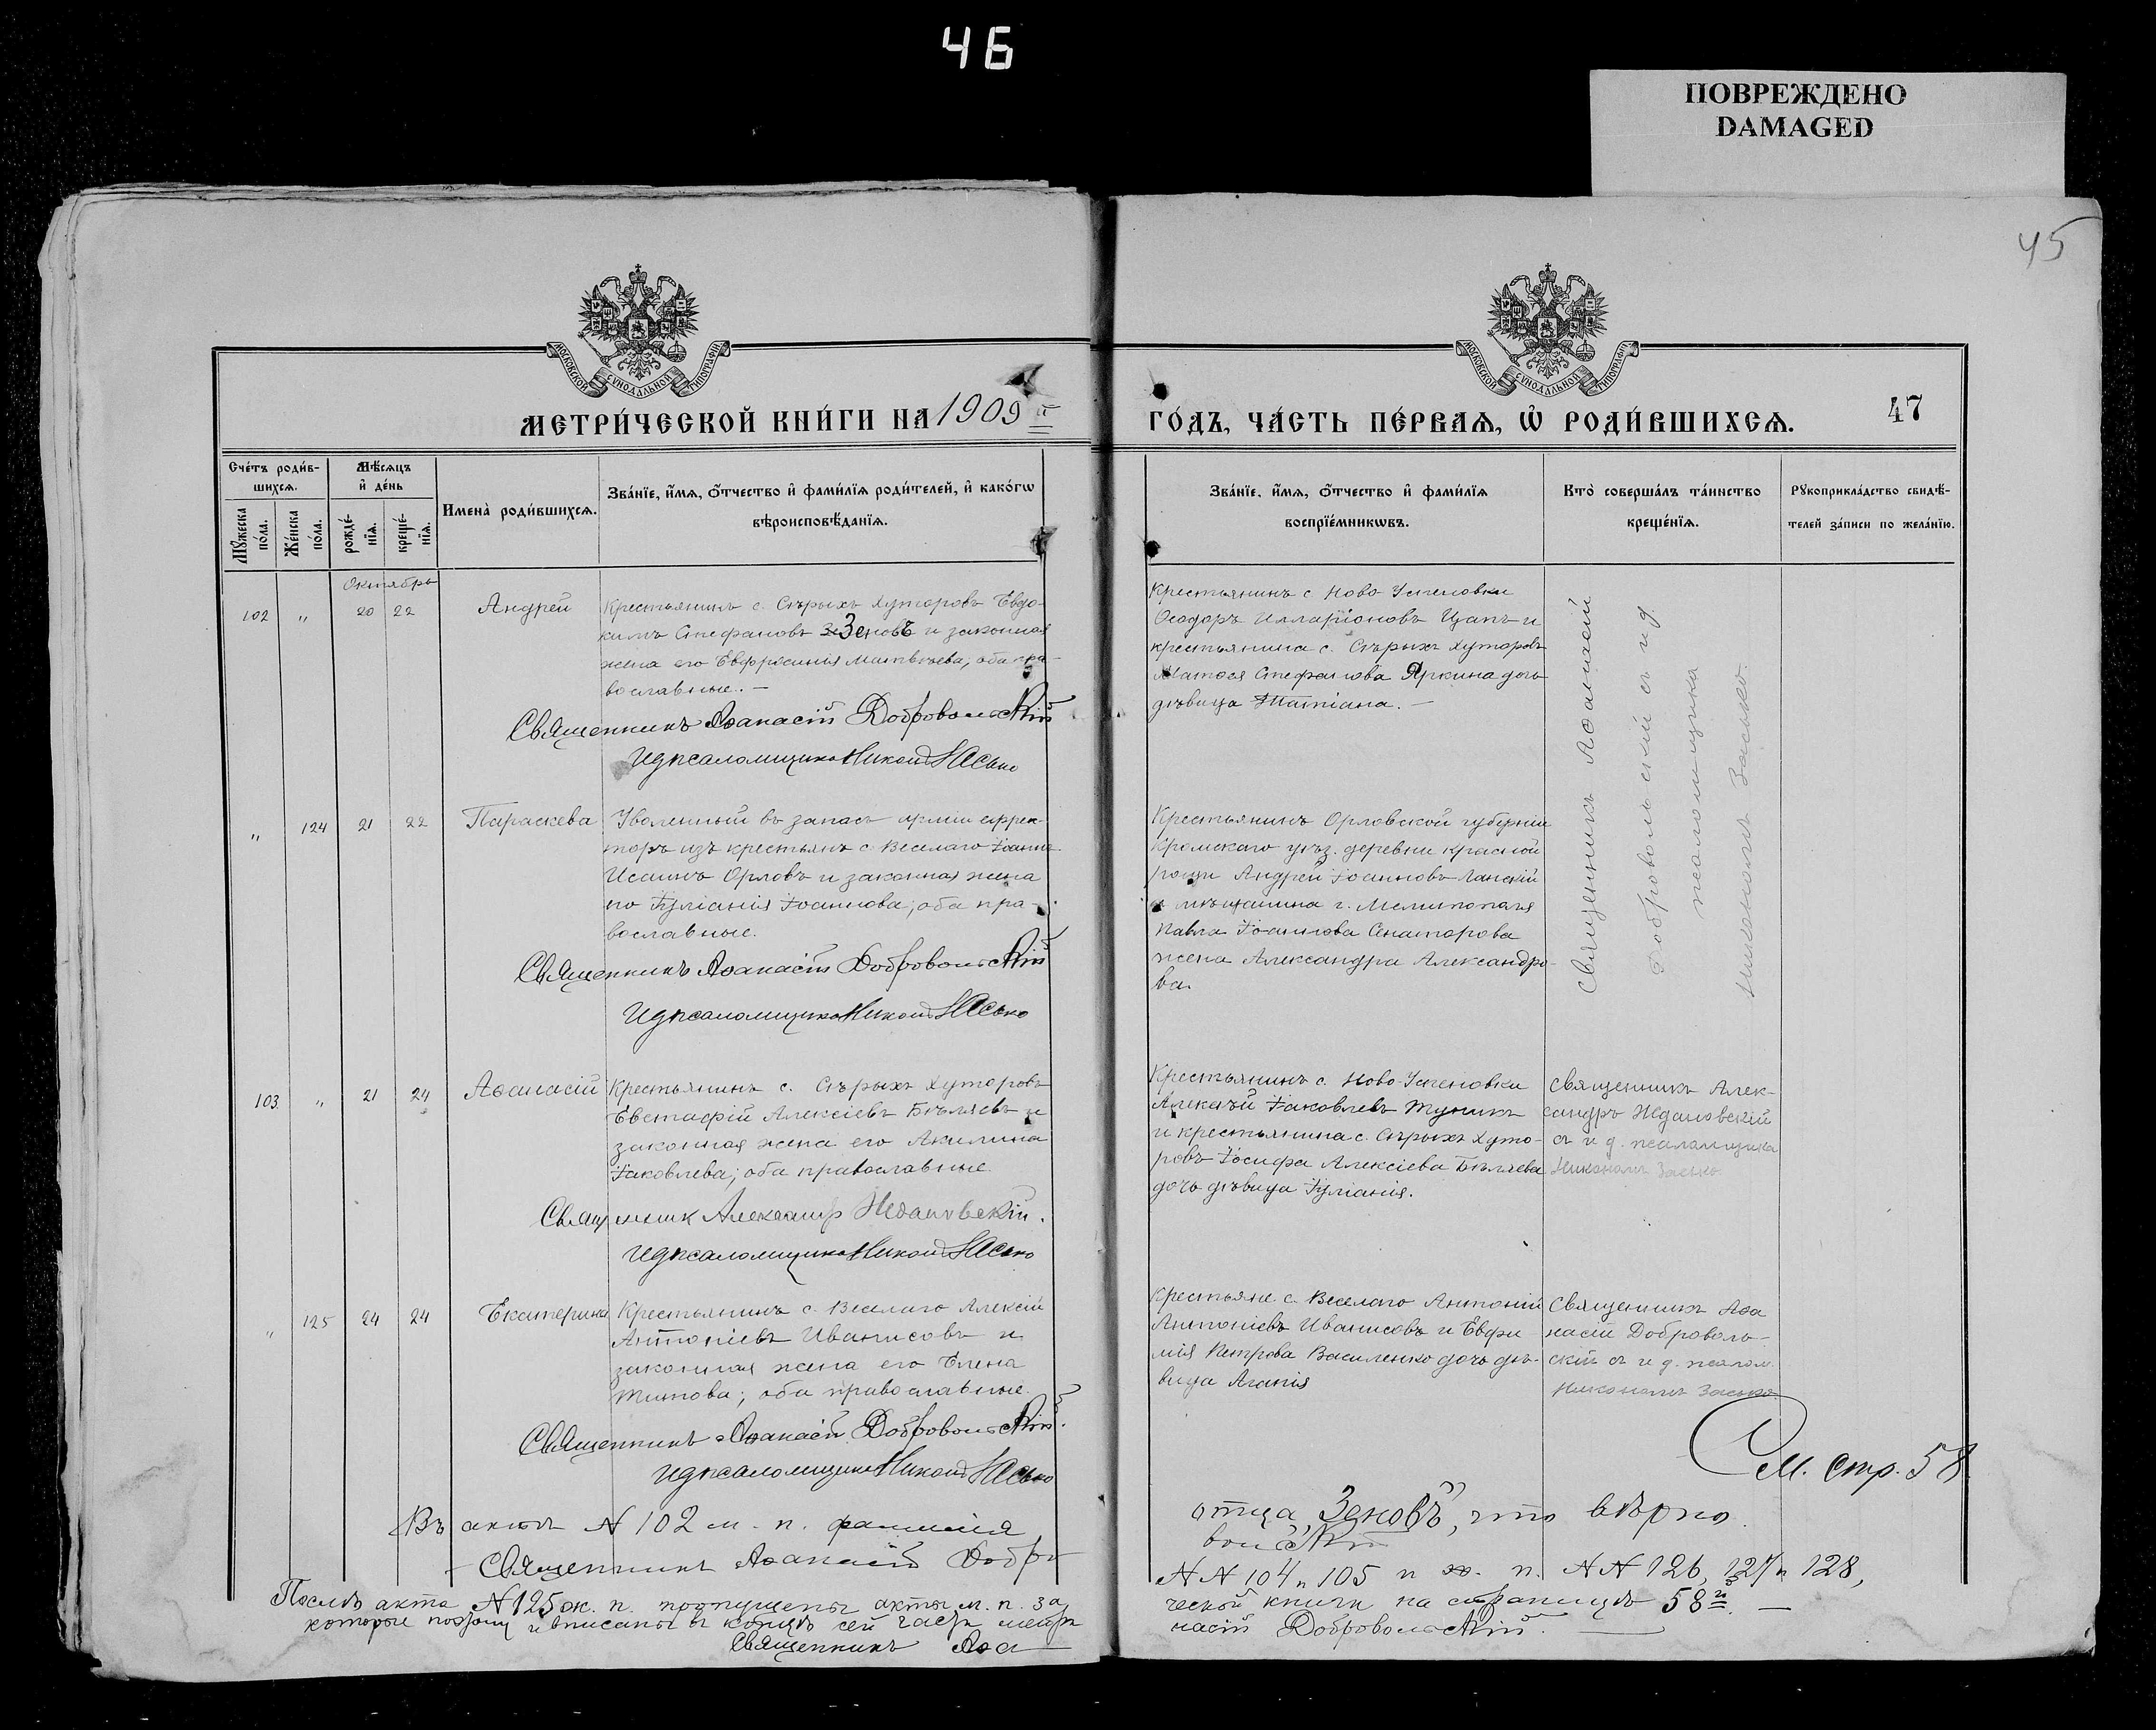 46
ПОВРЕЖДЕНО
DAMAGED
45
МОСКОВСКОЙ СѴНОДАЛЬНОЙ ТИПОГРАФІИ
МОСКОВСКОЙ СѴНОДАЛЬНОЙ ТИПОГРАФІИ
МЕТРИ́ЧЕСКОЙ КНИ́ГИ НА 1909й
ГО́ДЪ, ЧА́СТЬ ПЕ́РВАЯ, Ѡ҆ РОДИ́ВШИХСЯ.
47
Сче́тъ роди́в-
шихся.
Мѣ́сяцъ
и҆ де́нь
Мꙋ́жеска
по́ла.
Же́нска
по́ла.
рожде́-
нїя.
креще́-
нїя.
Имена̀ роди́вшихся.
Зва́нїе, и҆́мя, ѻ҆́тчество и҆ фами́лїя роди́телей, и҆ како́гѡ
вѣроисповѣ́данїя.
Зва́нїе, и҆́мя, ѻ҆́тчество и҆ фами́лїя
воспрїе́мникѡвъ.
Кто̀ соверша́лъ та́инство
креще́нїя.
Рꙋкоприкла́дство свидѣ́-
телей за́писи по жела́нїю.
Октябрь
102 " 20 22 Андрей
Крестьянинъ с. Сѣрыхъ Хуторовъ Евдо-
кимъ Стефановъ Зеновъ и законная
жена его Евфросинія Матвѣева, оба пра-
вославные. —
Священникъ Аѳанасій Добровольскій
И д псаломщика Никонъ Засько
Крестьянинъ с. Ново-Успеновки
Ѳеодоръ Илларіоновъ Цапъ и
крестьянина с. Сѣрыхъ Хуторовъ
Матѳея Стефанова Яркина дочь
дѣвица Татіана. —
Священникъ Аѳанасій
Добровольскій съ и д.
псаломщика
Никономъ Засько.
" 124 21 22 Параскева
Уволенный въ запасъ арміи ефрей-
торъ изъ крестьянъ с. Веселаго Іоаннъ
Исаинъ Орловъ и законная жена
его Іуліанія Іоаннова; оба пра-
вославные.
Священникъ Аѳанасій Добровольскій
И д псаломщика Никонъ Засько
Крестьянинъ Орловской губерніи
Кромскаго уѣз. деревни Красной
рощи Андрей Іоанновъ Ланскій
и мѣщанина г. Мелитополя
Павла Іоаннова Сенаторова
жена Александра Александро-
ва.
103 " 21 24 Аѳанасій
Крестьянинъ с. Сѣрыхъ Хуторовъ
Евстафій Алексіевъ Бѣляевъ и
законная жена его Акилина
Іаковлева; оба православные
Священник Александр Ждановскій.
И д псаломщика Никонъ Засько
Крестьянинъ с. Ново-Успеновки
Алексѣй Іаковлевъ Тупикъ
и крестьянина с. Сѣрыхъ Хуто-
ровъ Іосифа Алексіева Бѣляева
дочь дѣвица Іуліанія.
Священникъ Алек-
сандръ Ждановскій
съ и д. псаломщика
Никономъ Засько
" 125 24 24 Екатерина
Крестьянинъ с. Веселаго Алексій
Антоніевъ Иванисовъ и
законная жена его Елена
Титова; оба православные.
Священникъ Аѳанасій Добровольскій.
И д псаломщика Никонъ Засько
Крестьяне с. Веселаго Антоній
Антоніевъ Иванисовъ и Евфи
мія Петрова Василенко дочь дѣ-
вица Агапія
Священникъ Аѳа
насій Доброволь-
скій съ и д. псалом.
Никономъ Засько.
См. стр. 58
Въ актѣ № 102 м. п. фамилія
отца „Зеновъ“, что вѣрно.
Священникъ Аѳанасій Добро
вольскій
Послѣ акта № 125 ж. п. пропущены акты м. п. за
№№ 104 и 105 и ж. п. №№ 126, 127 и 128,
которые поэтому и вписаны въ концѣ сей части метри
ческой книги на страницѣ 58й. —
Священникъ Аѳа
насій Добровольскій.